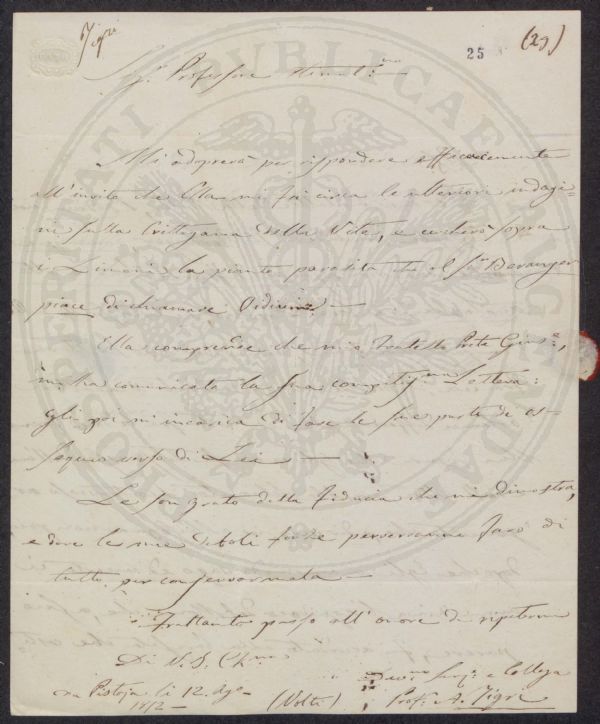 Tigri
25
(29)
Sig. Professore Stimat.mo
Mi adoprerò per rispondere efficacemente
all'invito che Ella mi fa circa le ulteriori indagi=
ni sulla Crittogama della Vite, e cercherò sopra
i Limoni la pianta parasita che al Sig.r Beranger
piace di chiamare Oidium —
Ella comprende che mio Fratello Prete Gius.e,
mi ha comunicata la sua Lettera:
gli poi m'incarica di fare le sue parte di os-
sequio verso di Lei —
Le son grato della fiducia che mi dimostra,
e dove le mie deboli forze perverranno farò di
tutto per conservarmela —
Frattanto passo all'onore di ripetermi
Di V. S. Ch.ma
Da Pistoja li 12. Ago
1852 —
(Volti)
Dev.mo Ser. e Collega
Prof. A. Tigri
PROSPERITATI PUBLICAE AUGENDAE